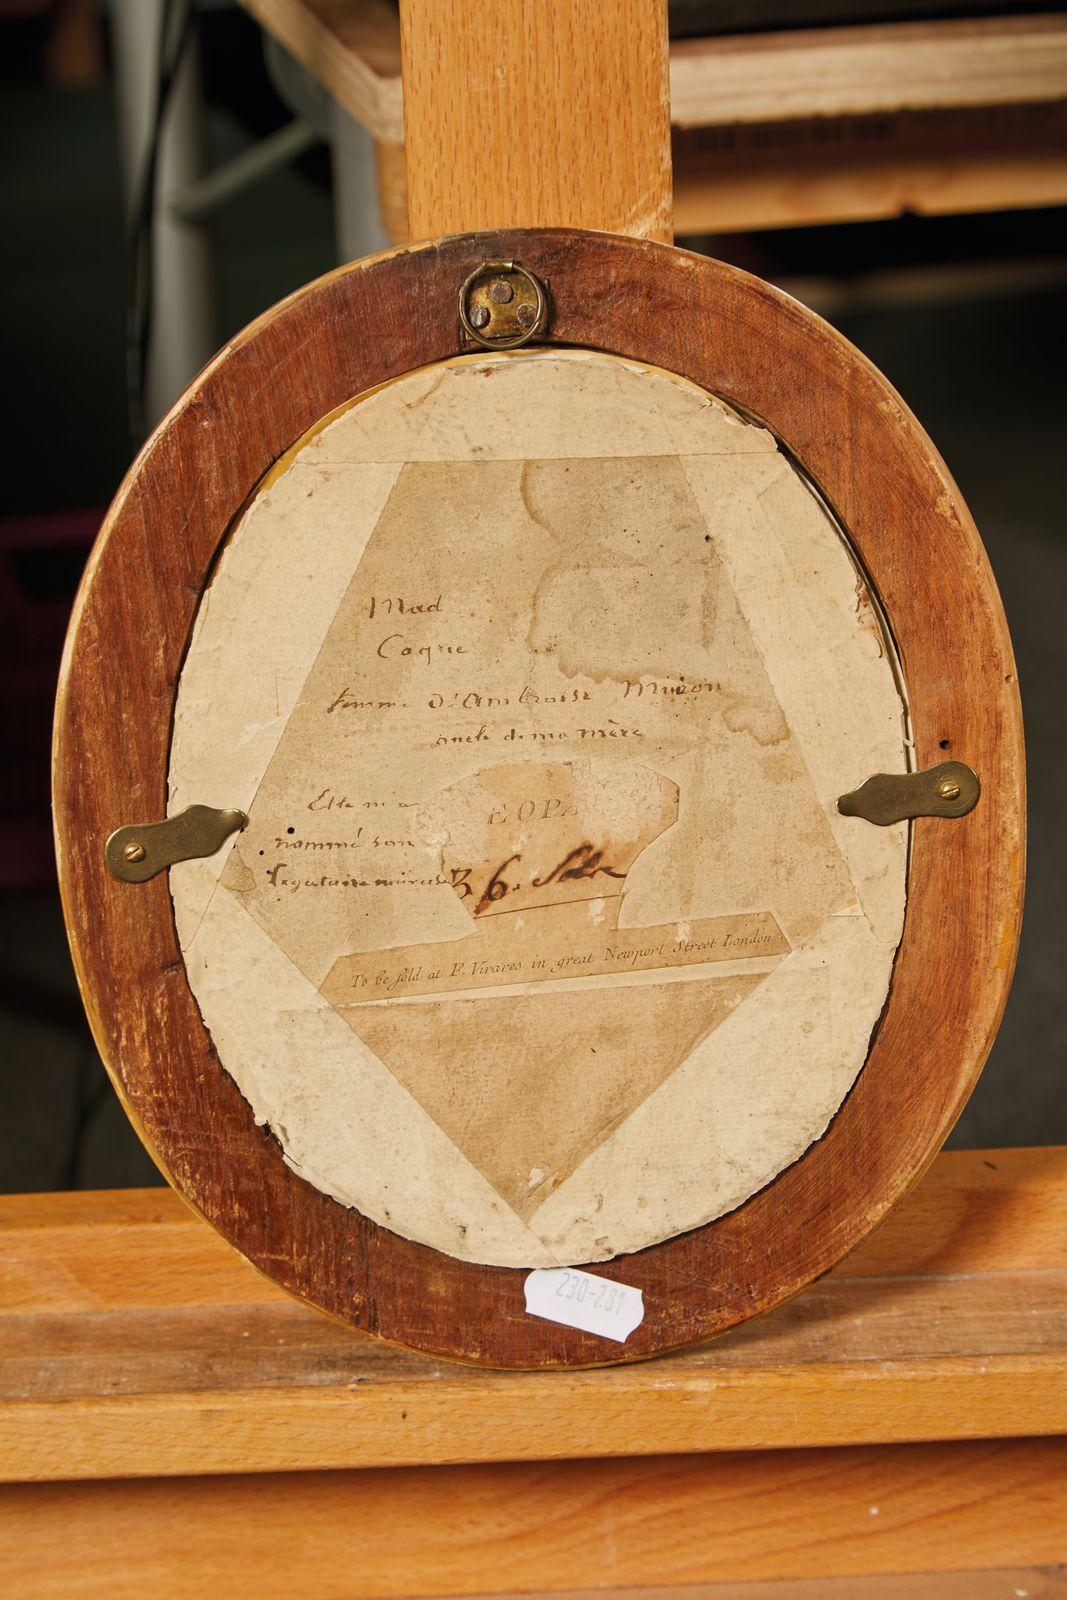 Mad
Coqrie
femme d'Ambroise Miron
oncle de ma mère
Elle m'a
nommé son
Legataire
EOP
36.
To be sold at F. Vivares in great Newport Street London
230-231